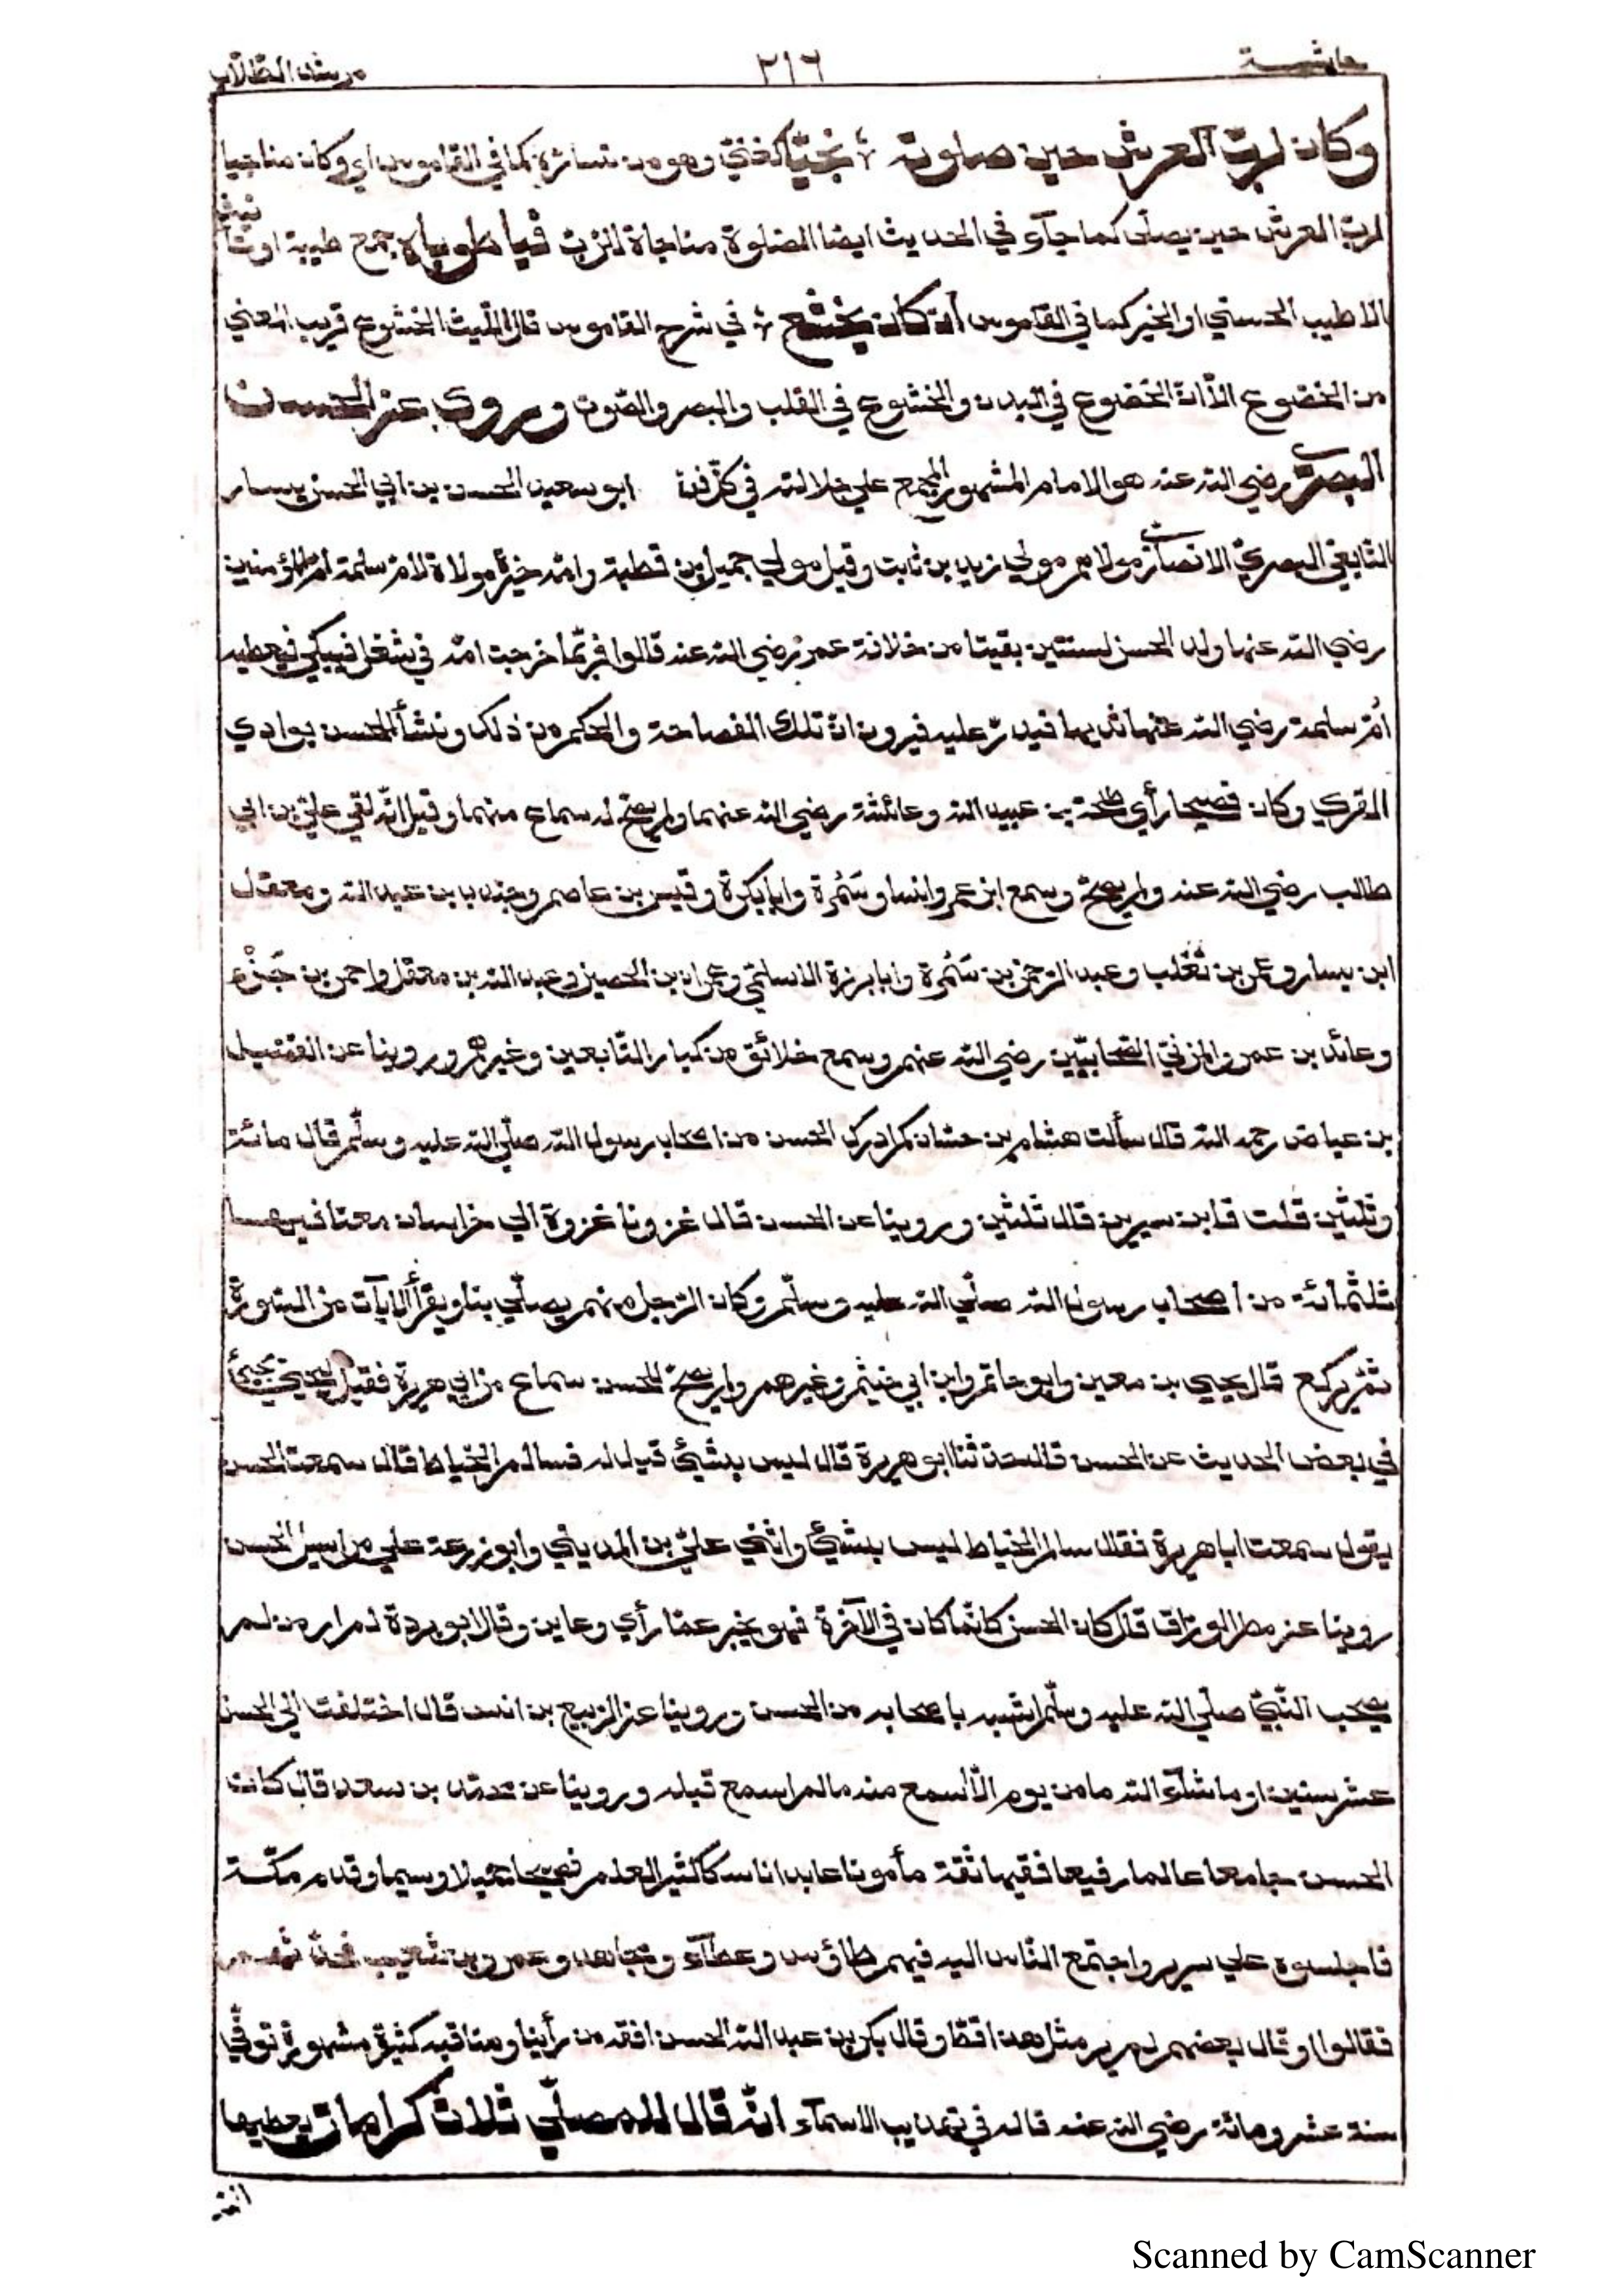 حاشية
٢١٦
مرشد الطلاب
وكان لرب العرش حين صلوته ؛ نجيّا كغنيّ وهو من تسارّه كما في القاموس اي وكان مناجيا
لربّ العرش حين يصلّى كما جآء في الحديث ايضا الصلوة مناجاة الرّبّ فيا طوباه جمع طيبة او تأنيث
الاطيب الحسنى او الخير كما في القاموس ان كان يخشع ؛ في شرح القاموس قال اللّيث الخشوع قريب المعنى
من الخضوع الّا انّ الخضوع في البدن والخشوع في القلب والبصر والصّوت وروي عن الحسن
البصريّ رضي الله عنه هو الامام المشهور المجمع على جلالته في كلّ فنّ ابو سعيد الحسن بن ابي الحسن يسار
التّابعيّ البصريّ الانصاريّ مولاهم مولى زيد بن ثابت وقيل مولى جميل بن قطبة وامّه خيرة مولاة لامّ سلمة امّ المؤمنين
رضي الله عنها ولد الحسن لسنتين بقيتا من خلافة عمر رضي الله عنه قالوا فربّما خرجت امّه في شغل فيبكي فتعطيه
أمّ سلمة رضي الله عنها ثديها فيدرّ عليه فيرون انّ تلك الفصاحة والحكم من ذلك ونشأ الحسن بوادي
القرى وكان فصيحا رأي طلحة بن عبيد الله وعائشة رضي الله عنهما ولم يصحّ له سماع منهما وقيل انّه لقي عليّ بن ابي
طالب رضي الله عنه ولم يصحّ وسمع ابن عمر وانسا وسَمُرة وابا بكرة وقيس بن عاصم وجندب بن عبد الله ومعقل
ابن يسار وعمرو بن تغلب وعبد الرّحمن بن سَمُرة وابا برزة الاسلميّ وعمران بن الحصين وعبد الله بن مغفل واحمر بن جَزْء
وعائذ بن عمرو المزنيّ الصّحابيّين رضي الله عنهم وسمع خلائق من كبار التّابعين وغيرهم وروينا عن الفضيل
بن عياض رحمه الله قال سألت هشام بن حسّان كم ادرك الحسن من اصحاب رسول الله صلّى الله عليه وسلّم قال مائة
وثلثين قلت فابن سيرين قال ثلثين وروينا عن الحسن قال غزونا غزوة الى خراسان معنا فيها
ثلثمائة من اصحاب رسول الله صلّى الله عليه وسلّم وكان الرّجل منهم يصلّي بنا ويقرأ الآيات من السّورة
ثمّ يركع قال يحيي بن معين وابو حاتم وابن ابي خيثم وغيرهم ولم يصحّ للحسن سماع من ابي هريرة فقيل ليحيي يجيئ
في بعض الحديث عن الحسن قال حدّثنا ابو هريرة قال ليس بشيئ قيل له فسالم الخياط قال سمعت الحسن
يقول سمعت ابا هريرة فقال سالم الخياط ليس بشيئ واثنى عليّ بن المديني وابو زرعة على مراسيل الحسن
روينا عن مطر الورّاق قال كان الحسن كانّما كان في الآخرة فهو يخبر عمّا رأي وعاين وقال ابو بردة لم ار من لم
يصحب النّبيّ صلّى الله عليه وسلّم اشبه باصحابه من الحسن وروينا عن الرّبيع بن انس قال اختلفت الى الحسن
عشر سنين او ما شآء الله ما من يوم الّا اسمع منه ما لم اسمع قبله وروينا عن محمّد بن سعد قال كان
الحسن جامعا عالما رفيعا فقيها ثقة مأمونا عابدا ناسكا كثير العلم فصيحا جميلا وسيما وقدم مكّة
فاجلسوه على سرير واجتمع النّاس اليه فيهم طاؤس وعطآء ومجاهد وعمرو بن شعيب فحدّثهم
فقالوا او قال بعضهم لم نر مثل هذا قطّ وقال بكر بن عبد الله الحسن افقه من رأينا ومناقبه كثيرة مشهورة توفّي
سنة عشر ومائة رضي الله عنه قاله في تهذيب الاسمآء انّه قال للمصلّي ثلاث كرامات يعطيها
Scanned by CamScanner